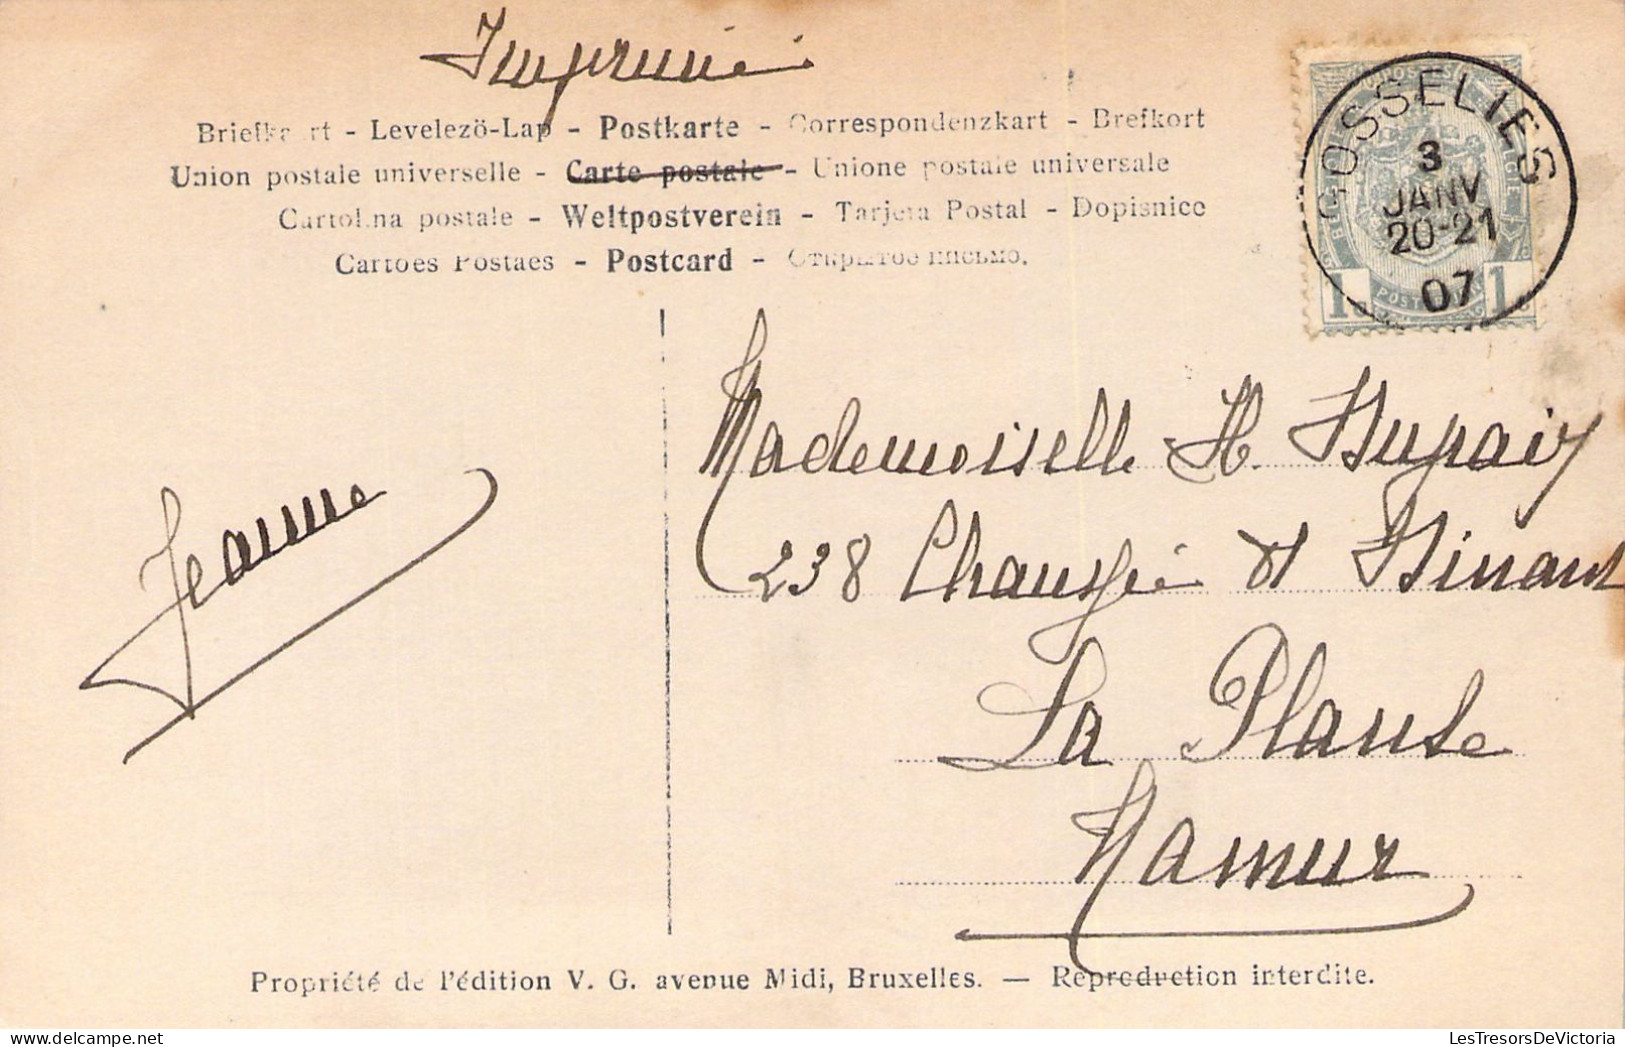 Imprimé
Briefkart - Levelezö-Lap - Postkarte - Correspondenzkart - Brefkort
Union postale universelle - Carte postale - Unione postale universale
Cartolina postale - Weltpostverein - Tarjeta Postal - Dopisnice
Cartoes Postaes - Postcard - Открытое письмо.
GOSSELIES
3
JANV
20-21
07
1c 1c
Mademoiselle H. Dupaix
238 Chaussée d Dinant
La Plante
Namur
Jeanne
Propriété de l'édition V. G. avenue Midi, Bruxelles. — Reproduction interdite.
LesTresorsDeVictoria